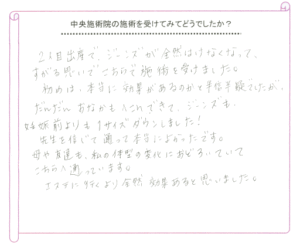 中央施術院の施術を受けてみてどうでしたか？
2人目出産で、ジーンズが全然はけなくなって、
すがる思いでこちらで施術を受けました。
初めは、本当に効果があるのかと半信半疑でしたが、
だんだんおなかもへこんできて、ジーンズも、
妊娠前よりも1サイズダウンしました！
先生を信じて通って本当によかったです。
母や友達も、私の体型の変化におどろいていて
こちらへ通っています。
エステに行くより全然効果あると思いました。